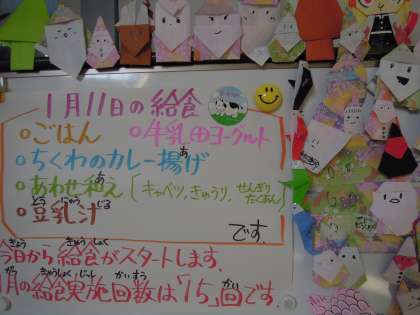 1月11日の給食
○ごはん ○牛乳 田ヨーグルト
○ちくわのカレー揚げ
○あわせ和え〔キャベツ、きゅうり、せんぎりたくあん〕
○豆乳汁
です。
今日から給食がスタートします。
1月の給食実施回数は「15」回です。